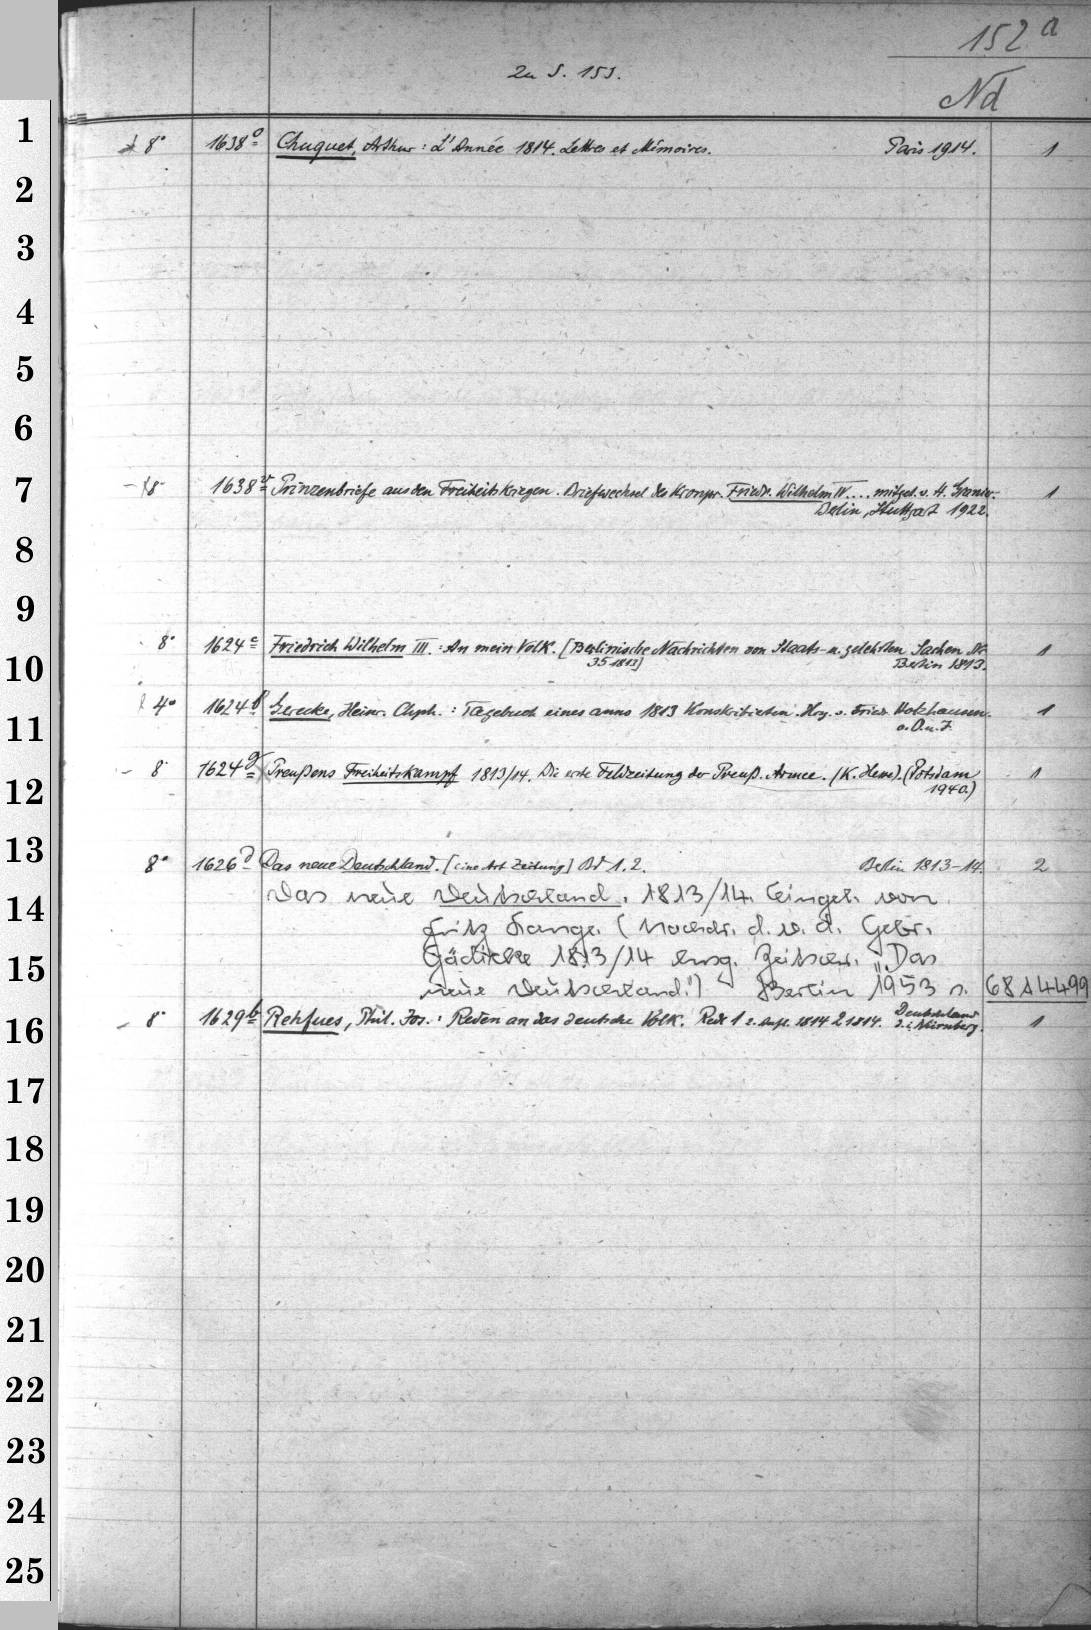 152 a
Zu S. 153.
Nd
1
8° 1638 o Chuquet, Arthur: L'Année 1814. Lettres et Mémoires. Paris 1914. 1
2
3
4
5
6
7
8° 1638 Prinzenbriefe aus den Freiheitskriegen. Briefwechsel des Kronpr. Friedr. Wilhelm IV.... mitget. v. H. Granier. 1
Berlin, Stuttgart 1922.
8
9
8° 1624 e Friedrich Wilhelm III.: An mein Volk. [Berlinische Nachrichten von Staats- u. gelehrten Sachen Nr. 1
10
35 1813] Berlin 1813.
4° 1624 f Gerecke, Heinr. Chph.: Tagebuch eines anno 1813 Konskribierten. Hrg. v. Fried. Holzhausen. 1
11
o.O.u.J.
8° 1624 g Preußens Freiheitskampf 1813/14. Die erste Feldzeitung der Preuß. Armee. (K. ) (Potsdam 1
12
1940.)
13
8° 1626 d Das neue Deutschland. [eine Art Zeitung] Bd 1.2. Berlin 1813-14. 2
14
Das neue Deutschland. 1813/14. Eingel. von
Fritz Lange. (Nachdr. d. v. d. Gebr.
15
Gädicke 1813/14 hrsg. Zeitschr. "Das
neue Deutschland.") Berlin 1953 68 A 4499
16
8° 1629 b Rehfues, Phil. Jos.: Reden an das deutsche Volk. Rede 1 2. Aufl. 1814 2 1814. Deutschland 1
d.i. Nürnberg.
17
18
19
20
21
22
23
24
25